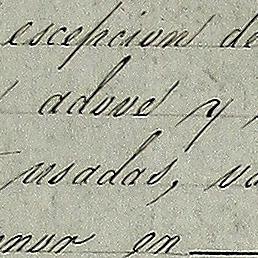 escepcion de
adove y
usadas,
en